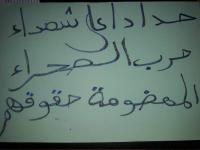 حدادا على شهداء
حرب الصحراء
المهضومة حقوقهم